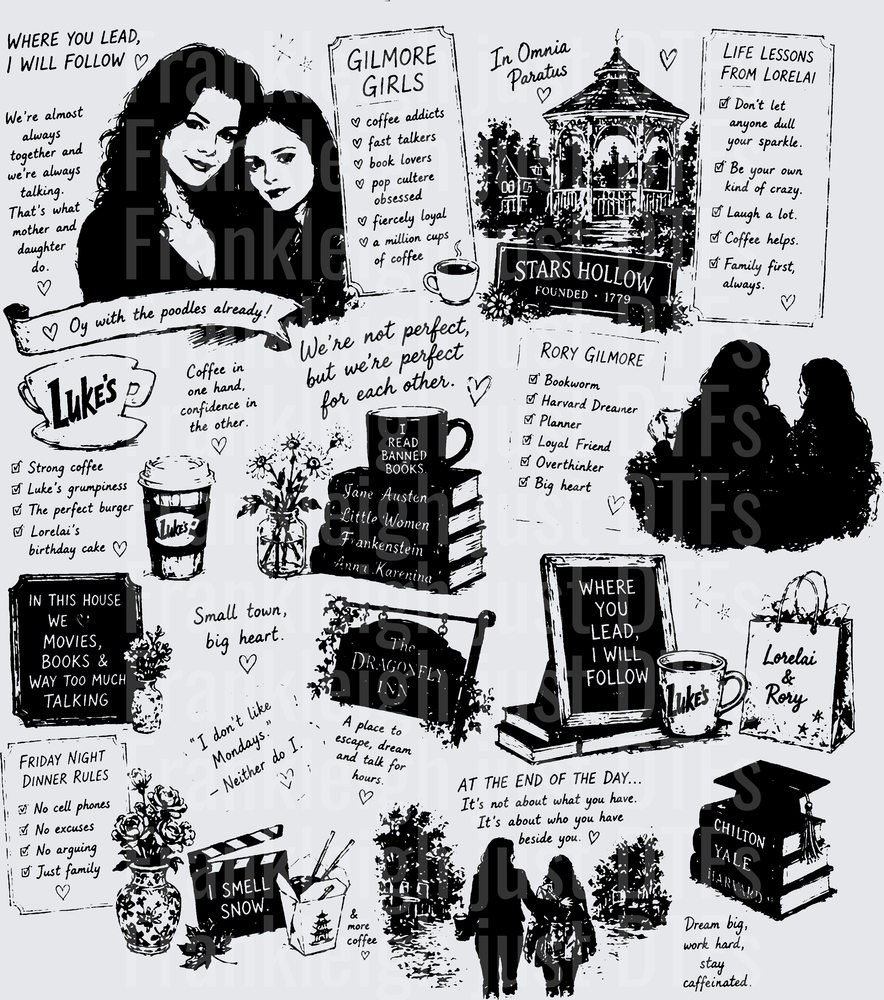 WHERE YOU LEAD,
I WILL FOLLOW
We're almost
always
together and
we're always
talking.
That's what
mother and
daughter
do.
GILMORE
GIRLS
coffee addicts
fast talkers
book lovers
pop cultere
obsessed
fiercely loyal
a million cups
of coffee
In Omnia
Paratus
STARS HOLLOW
FOUNDED · 1779
LIFE LESSONS
FROM LORELAI
Don't let
anyone dull
your sparkle.
Be your own
kind of crazy.
Laugh a lot.
Coffee helps.
Family first,
always.
Oy with the poodles already!
We're not perfect,
but we're perfect
for each other.
LUKE'S
Coffee in
one hand,
confidence in
the other.
Strong coffee
Luke's grumpiness
The perfect burger
Lorelai's
birthday cake
LUKE'S
I
READ
BANNED
BOOKS.
Jane Austen
Little Women
Frankenstein
Anna Karenina
RORY GILMORE
Bookworm
Harvard Dreamer
Planner
Loyal Friend
Overthinker
Big heart
IN THIS HOUSE
WE
MOVIES,
BOOKS &
WAY TOO MUCH
TALKING
Small town,
big heart.
The
DRAGONFLY
INN
A place to
escape, dream
and talk for
hours.
WHERE
YOU
LEAD,
I WILL
FOLLOW
LUKE'S
Lorelai
&
Rory
"I don't like
Mondays."
– Neither do I.
FRIDAY NIGHT
DINNER RULES
No cell phones
No excuses
No arguing
Just family
I SMELL
SNOW
&
more
coffee
AT THE END OF THE DAY...
It's not about what you have.
It's about who you have
beside you.
CHILTON
YALE
HARVARD
Dream big,
work hard,
stay
caffeinated.
Frankleigh just DTFs
Frankleigh just DTFs
Frankleigh just DTFs
Frankleigh just DTFs
Frankleigh just DTFs
Frankleigh just DTFs
Frankleigh just DTFs
Frankleigh just DTFs
Frankleigh just DTFs
Frankleigh just DTFs